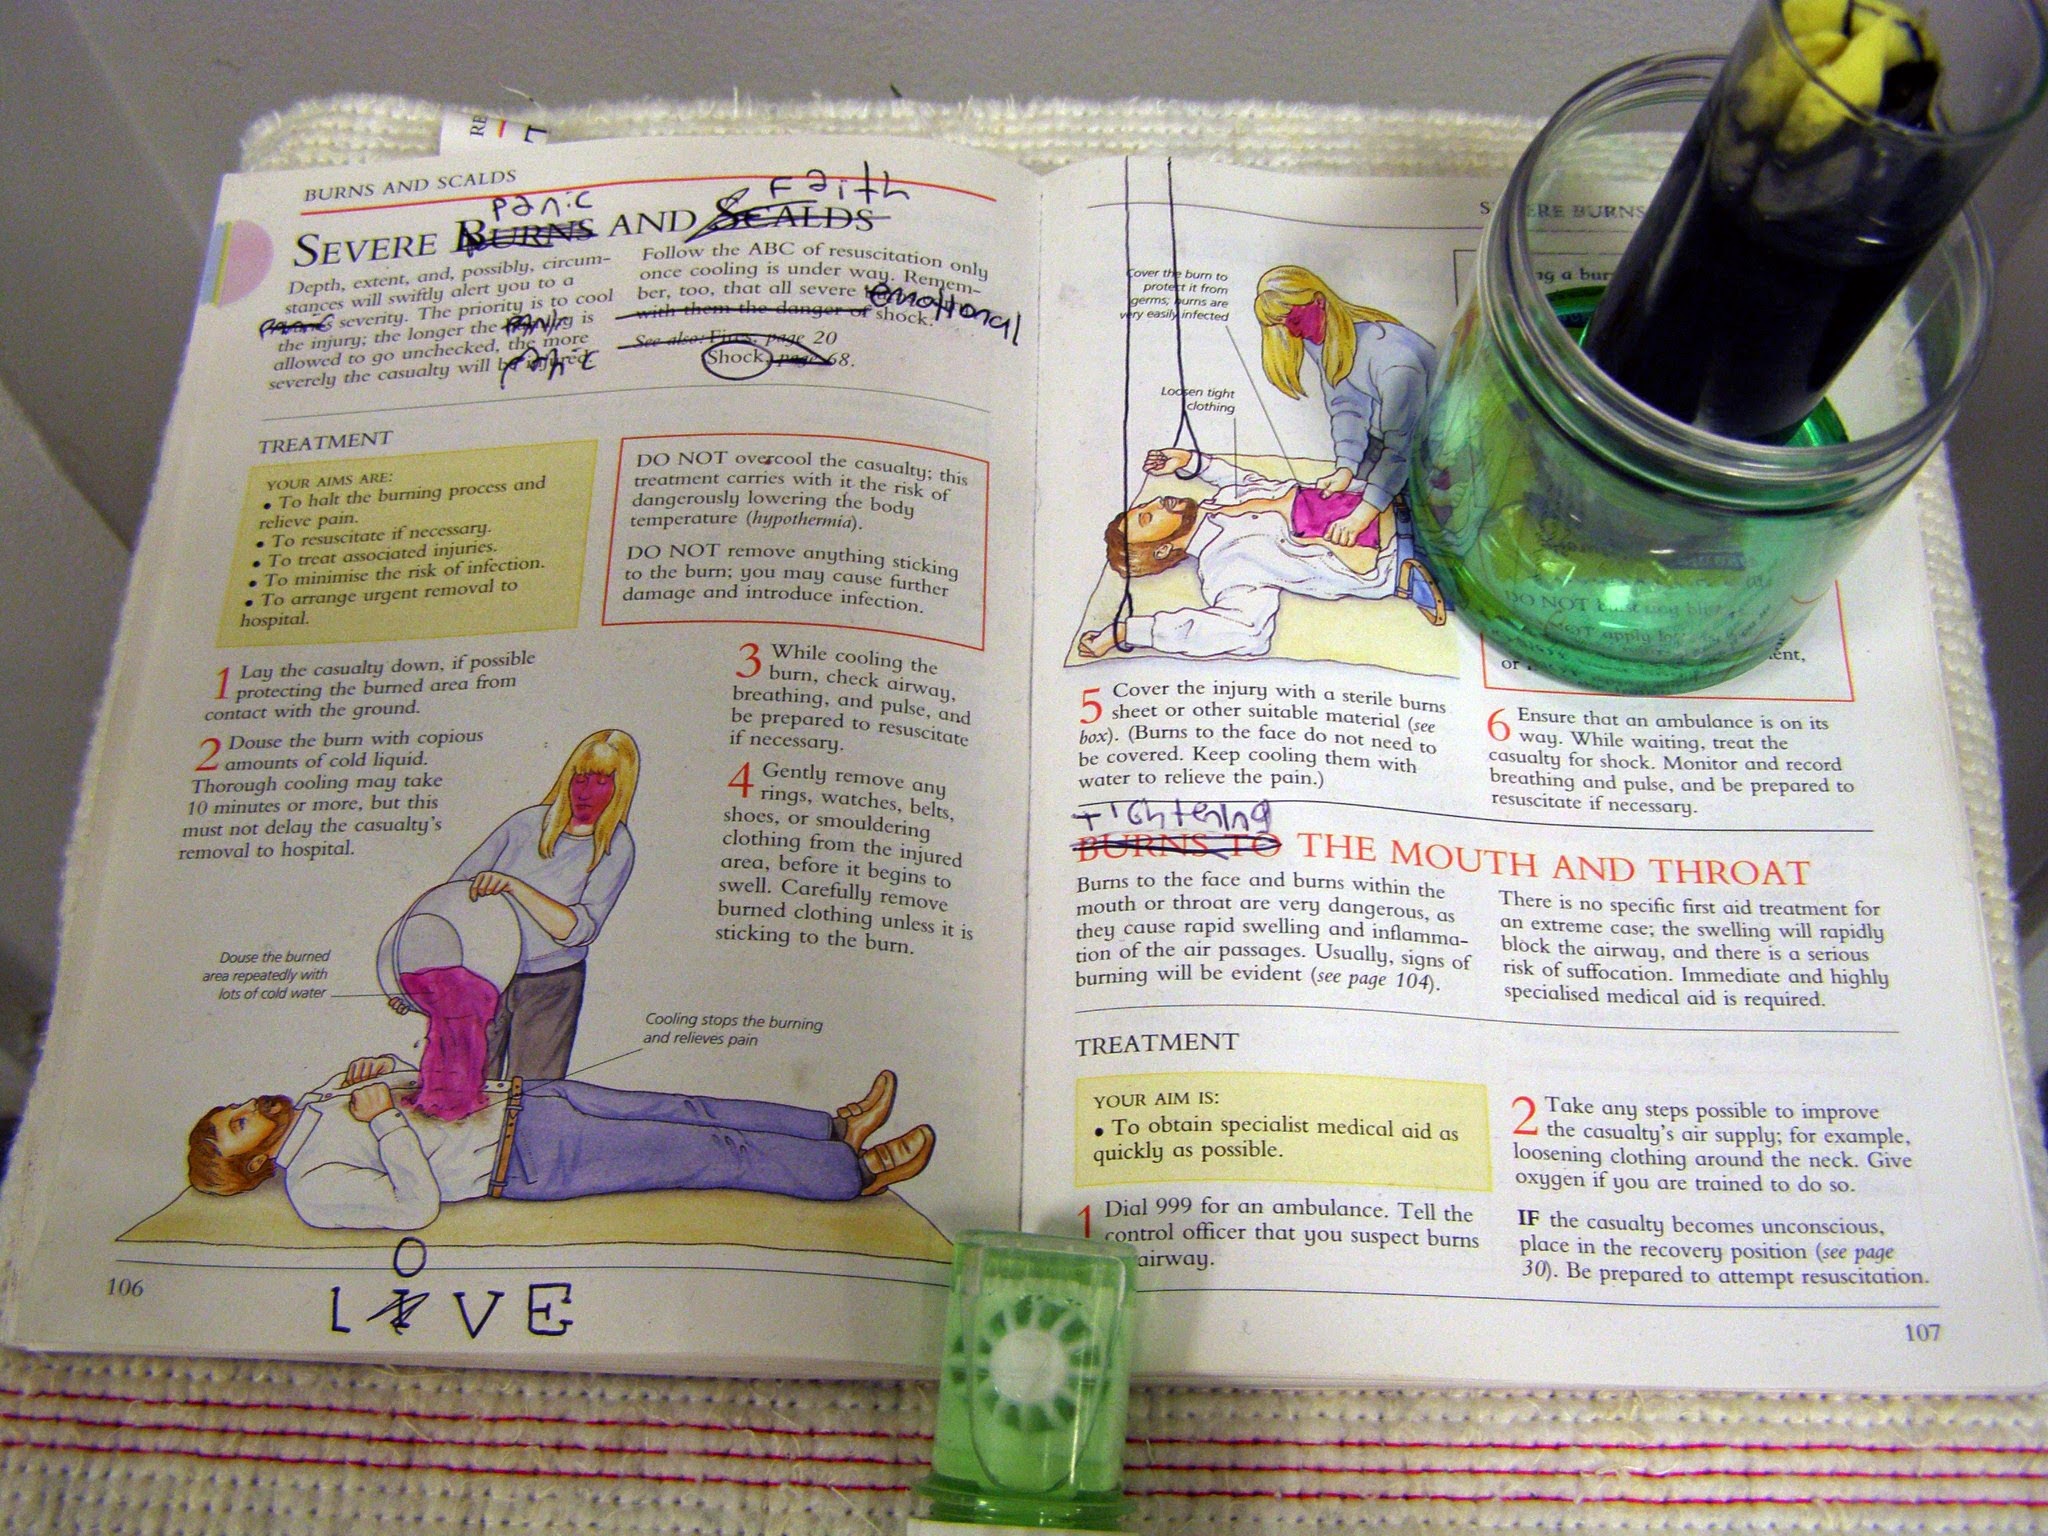 RE
BURNS AND SCALDS
panic Faith
SEVERE BURNS AND SCALDS
Depth, extent, and, possibly, circum-
stances will swiftly alert you to a
panic severity. The priority is to cool
the injury; the longer the panic is
allowed to go unchecked, the more
severely the casualty will be panic
Follow the ABC of resuscitation only
once cooling is under way. Remem-
ber, too, that all severe emotional
with them the danger of shock.
See also: Fires, page 20
Shock, page 68.
TREATMENT
YOUR AIMS ARE:
• To halt the burning process and
relieve pain.
• To resuscitate if necessary.
• To treat associated injuries.
• To minimise the risk of infection.
• To arrange urgent removal to
hospital.
DO NOT overcool the casualty; this
treatment carries with it the risk of
dangerously lowering the body
temperature (hypothermia).
DO NOT remove anything sticking
to the burn; you may cause further
damage and introduce infection.
1 Lay the casualty down, if possible
protecting the burned area from
contact with the ground.
2 Douse the burn with copious
amounts of cold liquid.
Thorough cooling may take
10 minutes or more, but this
must not delay the casualty's
removal to hospital.
3 While cooling the
burn, check airway,
breathing, and pulse, and
be prepared to resuscitate
if necessary.
4 Gently remove any
rings, watches, belts,
shoes, or smouldering
clothing from the injured
area, before it begins to
swell. Carefully remove
burned clothing unless it is
sticking to the burn.
Douse the burned
area repeatedly with
lots of cold water
Cooling stops the burning
and relieves pain
O
LIVE
106
SEVERE BURNS
Cover the burn to
protect it from
germs; burns are
very easily infected
Loosen tight
clothing
a bur
DO NOT
apply
or
5 Cover the injury with a sterile burns
sheet or other suitable material (see
box). (Burns to the face do not need to
be covered. Keep cooling them with
water to relieve the pain.)
6 Ensure that an ambulance is on its
way. While waiting, treat the
casualty for shock. Monitor and record
breathing and pulse, and be prepared to
resuscitate if necessary.
tightening
BURNS TO THE MOUTH AND THROAT
Burns to the face and burns within the
mouth or throat are very dangerous, as
they cause rapid swelling and inflamma-
tion of the air passages. Usually, signs of
burning will be evident (see page 104).
There is no specific first aid treatment for
an extreme case; the swelling will rapidly
block the airway, and there is a serious
risk of suffocation. Immediate and highly
specialised medical aid is required.
TREATMENT
YOUR AIM IS:
• To obtain specialist medical aid as
quickly as possible.
1 Dial 999 for an ambulance. Tell the
control officer that you suspect burns
airway.
2 Take any steps possible to improve
the casualty's air supply; for example,
loosening clothing around the neck. Give
oxygen if you are trained to do so.
IF the casualty becomes unconscious,
place in the recovery position (see page
30). Be prepared to attempt resuscitation.
107